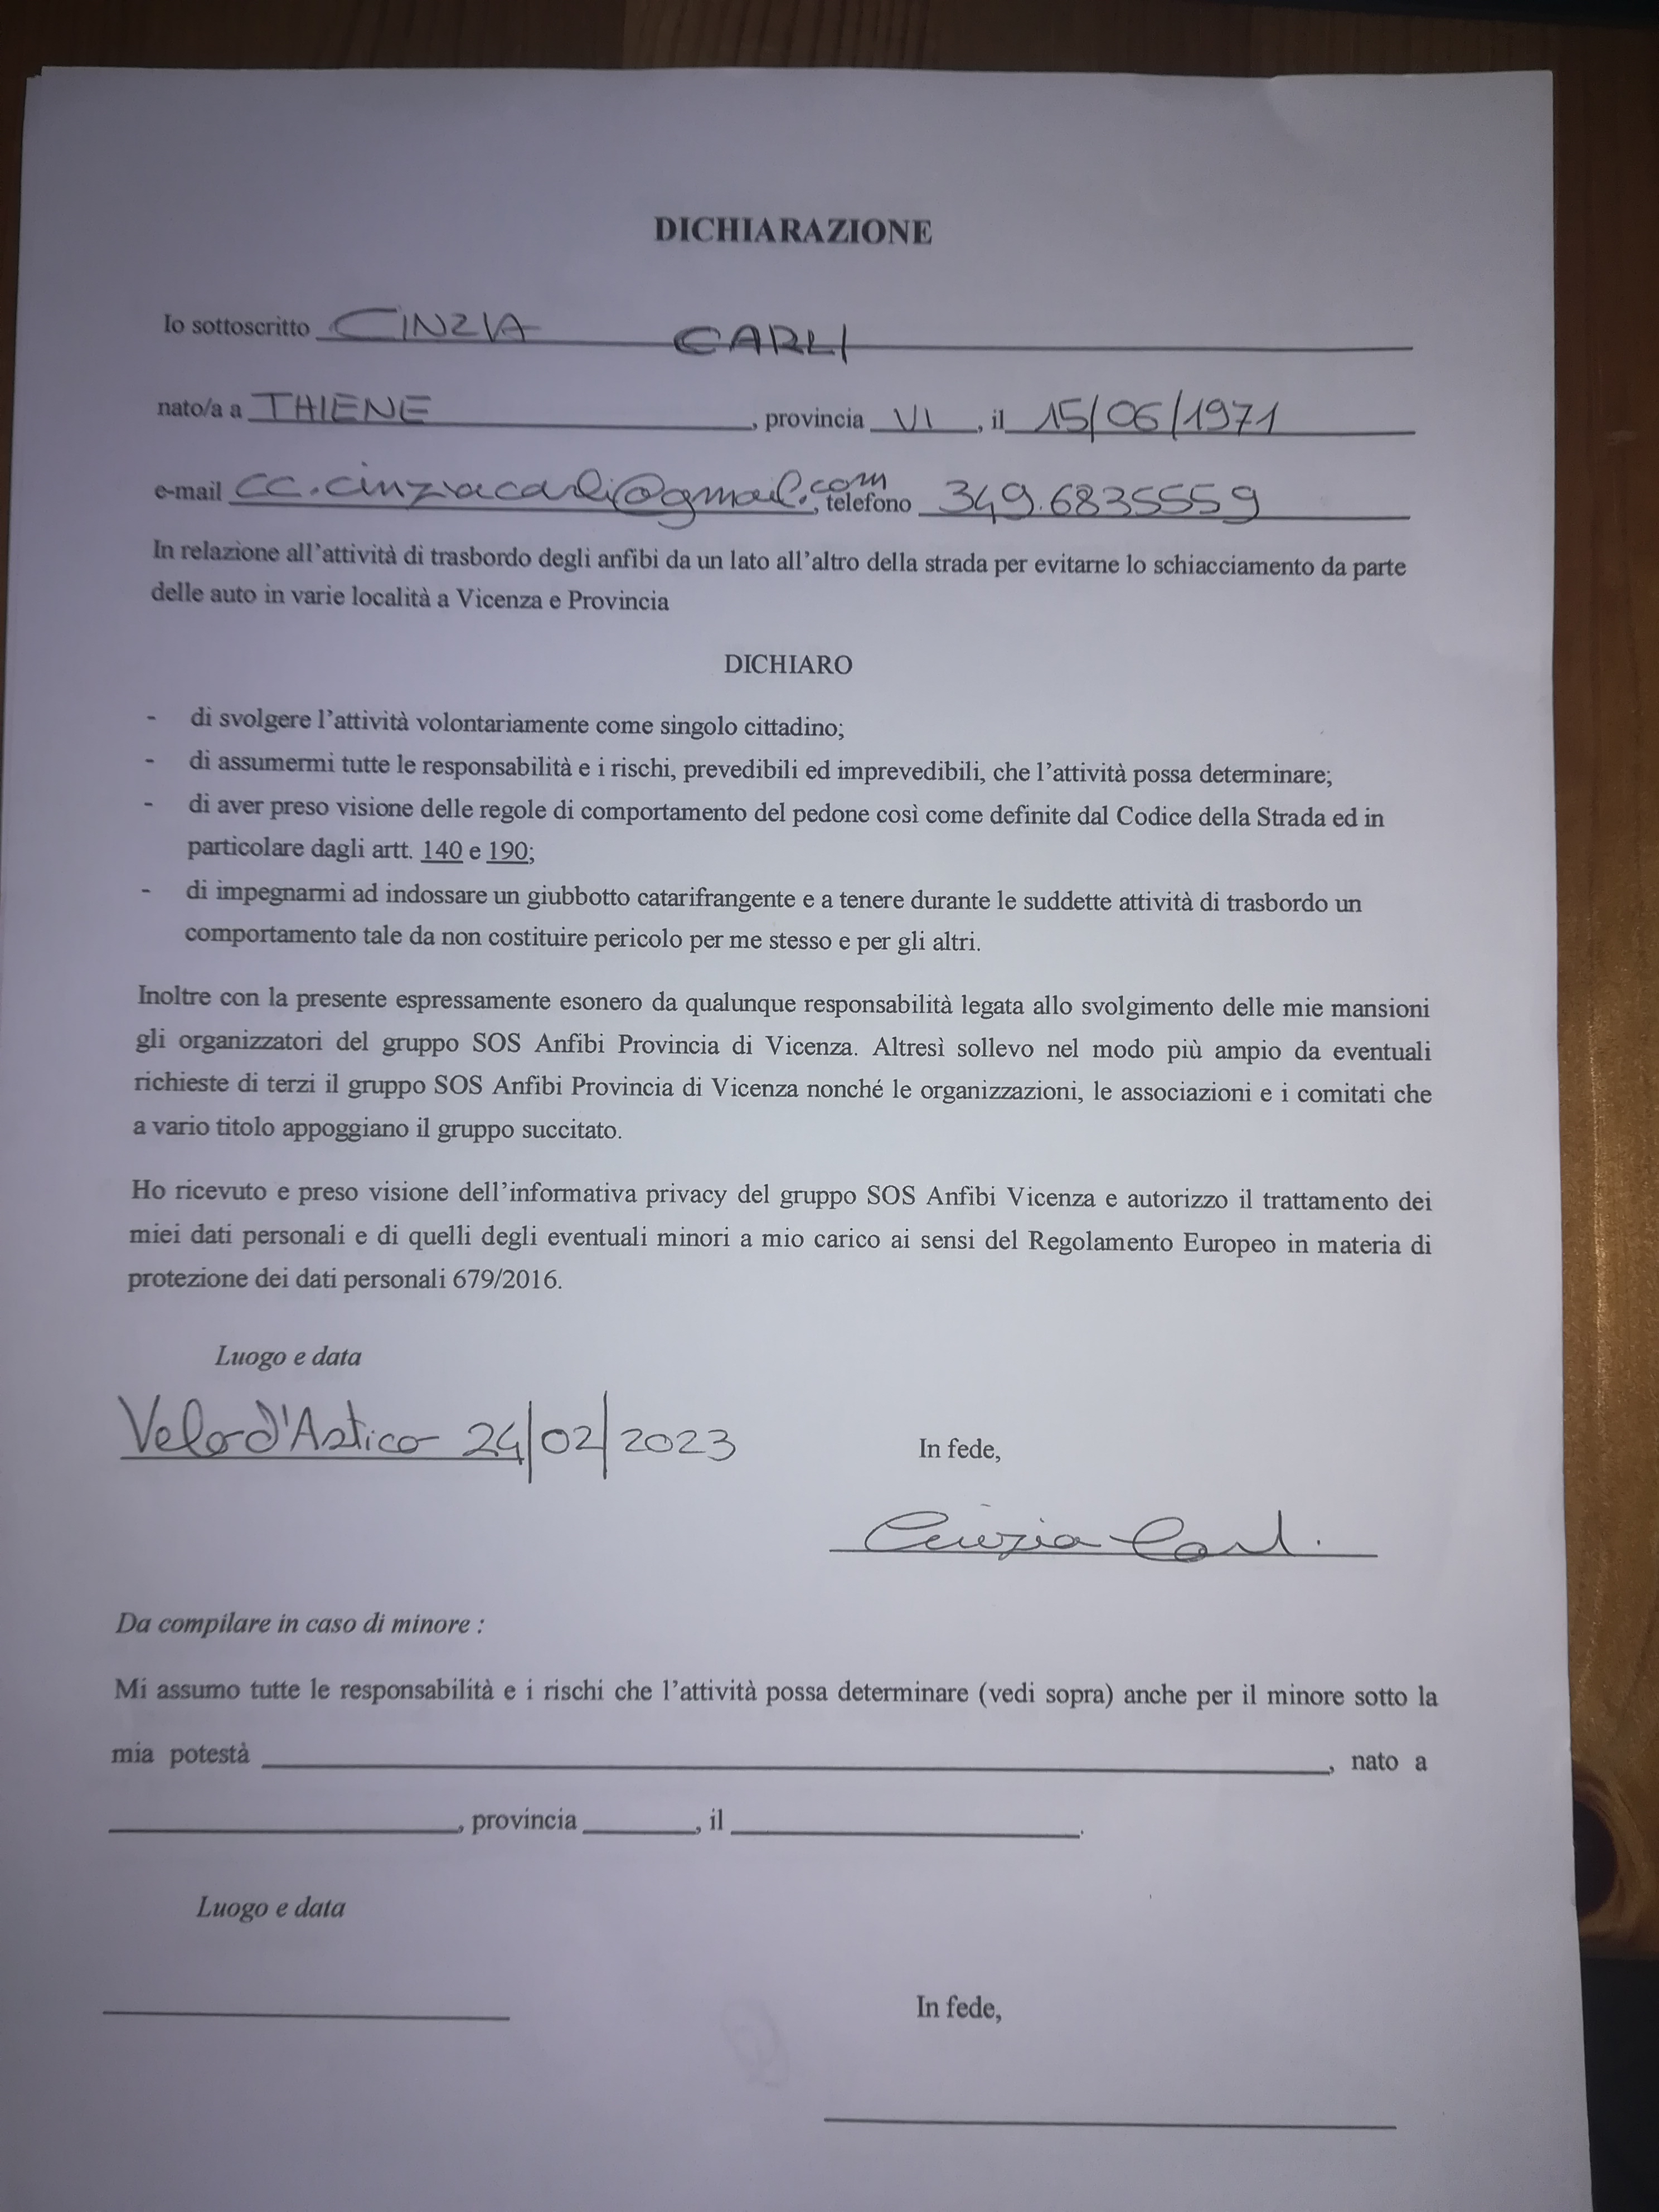 DICHIARAZIONE
Io sottoscritto CINZIA CARLI
nato/a a THIENE, provincia VI, il 15/06/1971
e-mail cc.cinziacarli@gmail.com, telefono 349.6835559
In relazione all'attività di trasbordo degli anfibi da un lato all'altro della strada per evitarne lo schiacciamento da parte
delle auto in varie località a Vicenza e Provincia
DICHIARO
- di svolgere l'attività volontariamente come singolo cittadino;
- di assumermi tutte le responsabilità e i rischi, prevedibili ed imprevedibili, che l'attività possa determinare;
- di aver preso visione delle regole di comportamento del pedone così come definite dal Codice della Strada ed in
particolare dagli artt. 140 e 190;
- di impegnarmi ad indossare un giubbotto catarifrangente e a tenere durante le suddette attività di trasbordo un
comportamento tale da non costituire pericolo per me stesso e per gli altri.
Inoltre con la presente espressamente esonero da qualunque responsabilità legata allo svolgimento delle mie mansioni
gli organizzatori del gruppo SOS Anfibi Provincia di Vicenza. Altresì sollevo nel modo più ampio da eventuali
richieste di terzi il gruppo SOS Anfibi Provincia di Vicenza nonché le organizzazioni, le associazioni e i comitati che
a vario titolo appoggiano il gruppo succitato.
Ho ricevuto e preso visione dell'informativa privacy del gruppo SOS Anfibi Vicenza e autorizzo il trattamento dei
miei dati personali e di quelli degli eventuali minori a mio carico ai sensi del Regolamento Europeo in materia di
protezione dei dati personali 679/2016.
Luogo e data
Velo d'Astico 24/02/2023
In fede,
Cinzia Carli
Da compilare in caso di minore :
Mi assumo tutte le responsabilità e i rischi che l'attività possa determinare (vedi sopra) anche per il minore sotto la
mia potestà , nato a
, provincia , il .
Luogo e data
In fede,